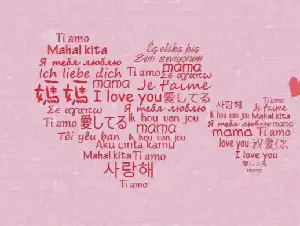 Ti amo
Mahal kita
Я тебя люблю
Ich liebe dich
Seni seviyorum
Я тебя люблю
Ti amo mama
mama Je t'aime
媽媽 I love you 愛してる
Σε αγαπω
Σε αγαπω Ik hou van jou
Ti amo 愛してる mama
Tôi yêu bạn Ti amo
Aku cinta kamu
Mahal kita Ti amo
사랑해
Ti amo
사랑해 Ti amo
Je t'aime
Ik hou van jou Mahal kita
Я тебя люблю mama
mama Ti amo
love you 我愛你
I love you
mama
Ti amo